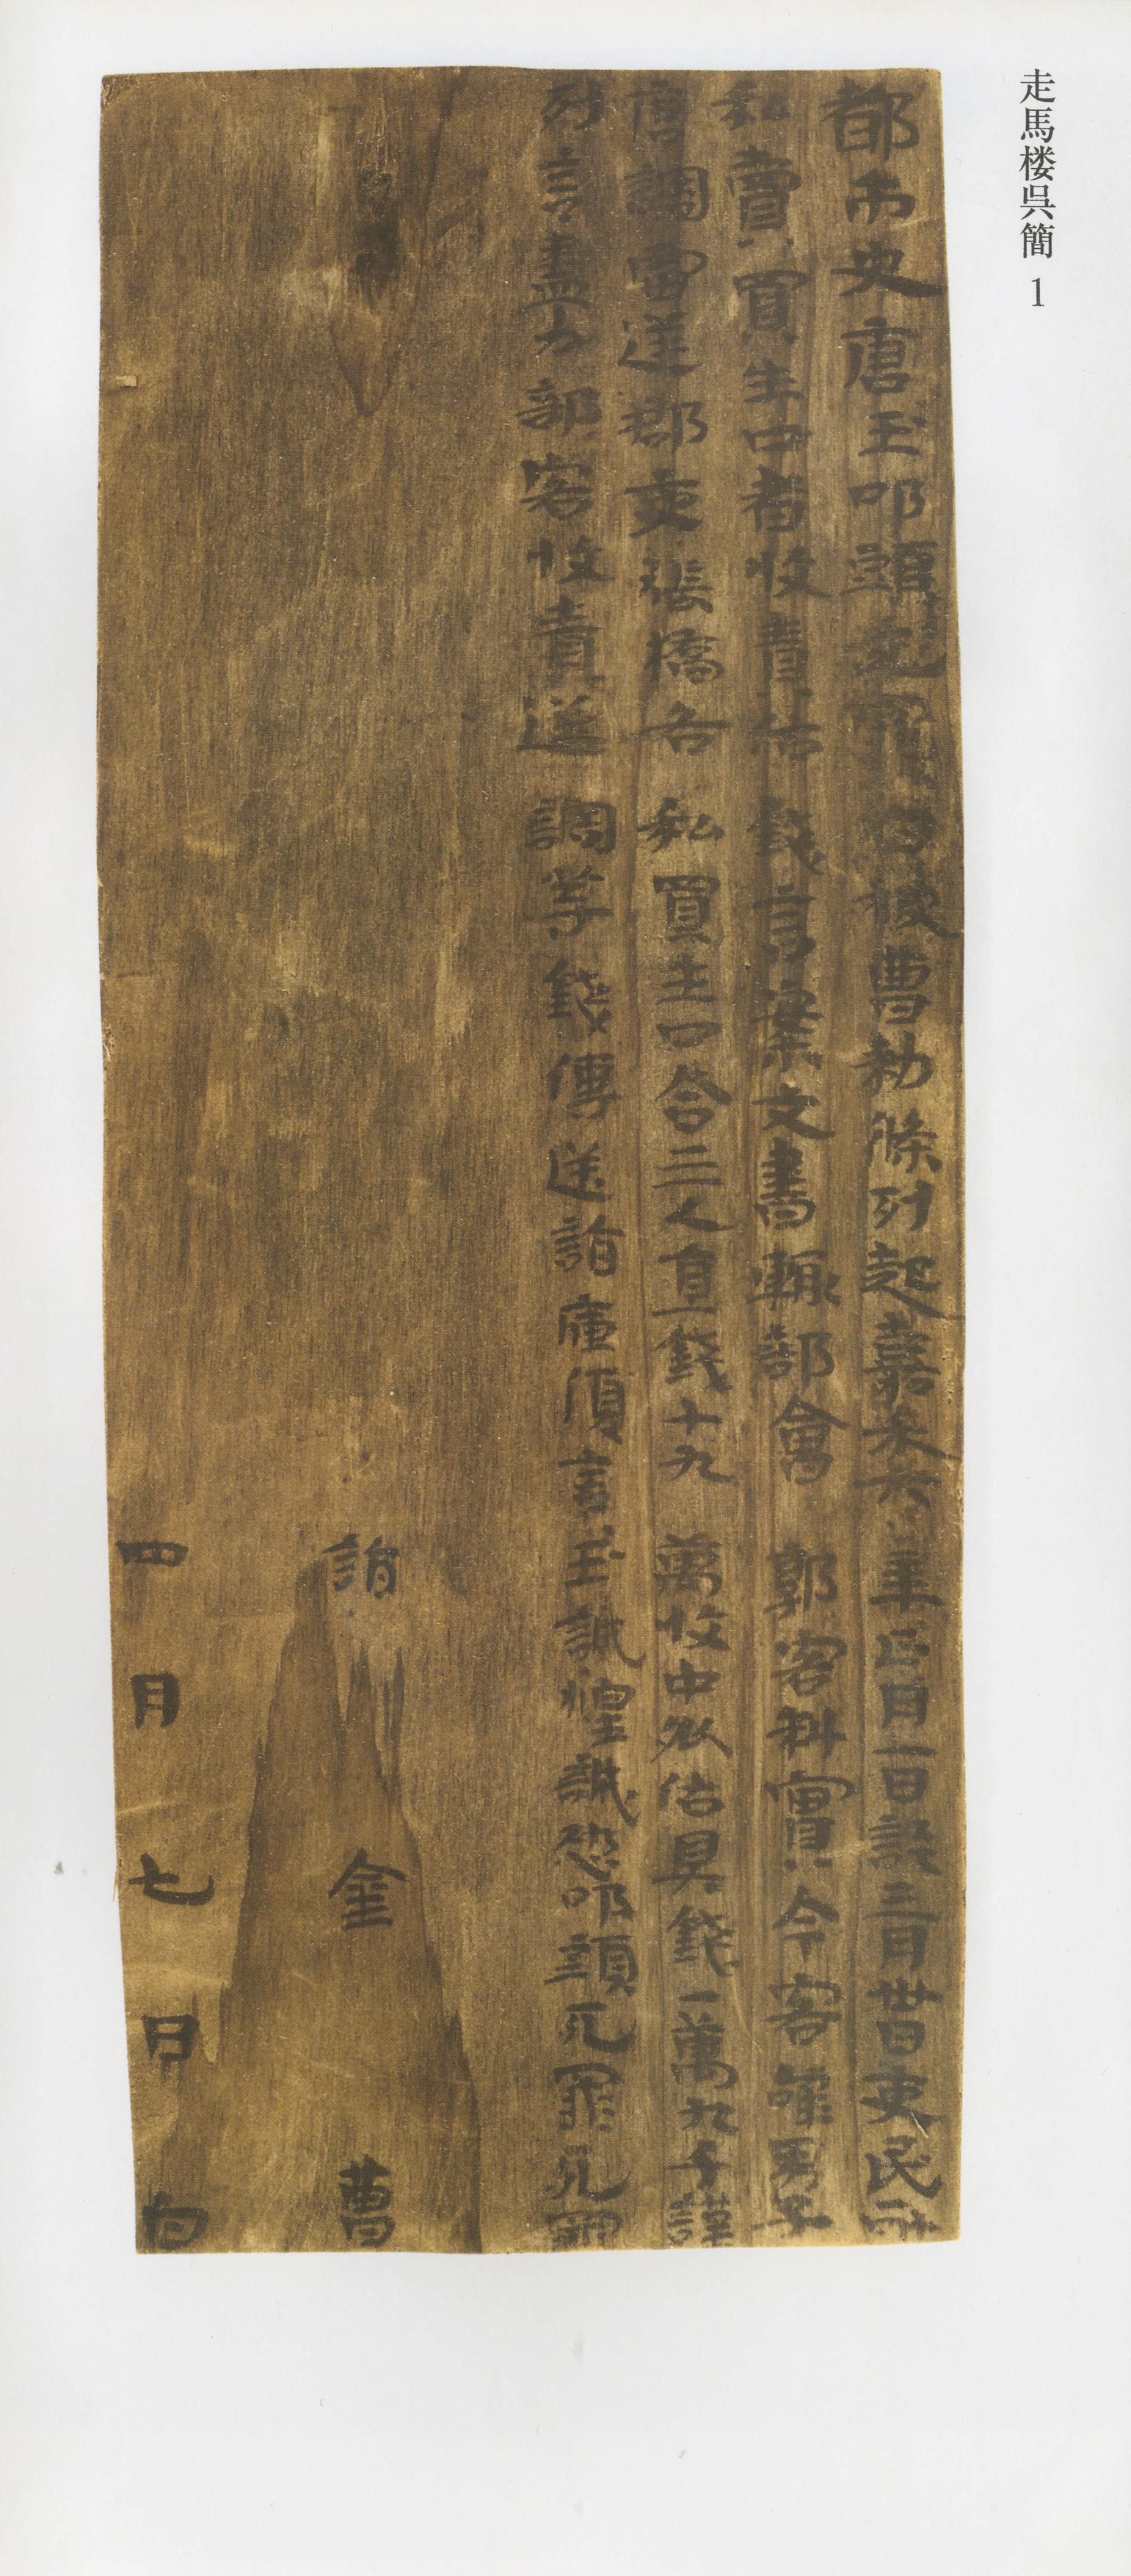 走馬楼呉簡 1
都市史唐玉叩頭死罪白被曹勑條列起嘉禾六年正月一日訖三月卅日吏民所
私賣買生口者收責估錢言案文書輒部會郭客料實今客辭男子
唐調雷逆郡吏張橋各私買生口合三人直錢十九萬收中外估具錢一萬九千謹
列言盡力部客收責逆調等錢傳送詣庫復言玉誠惶誠恐叩頭死罪死罪
詣金曹
四月七日白